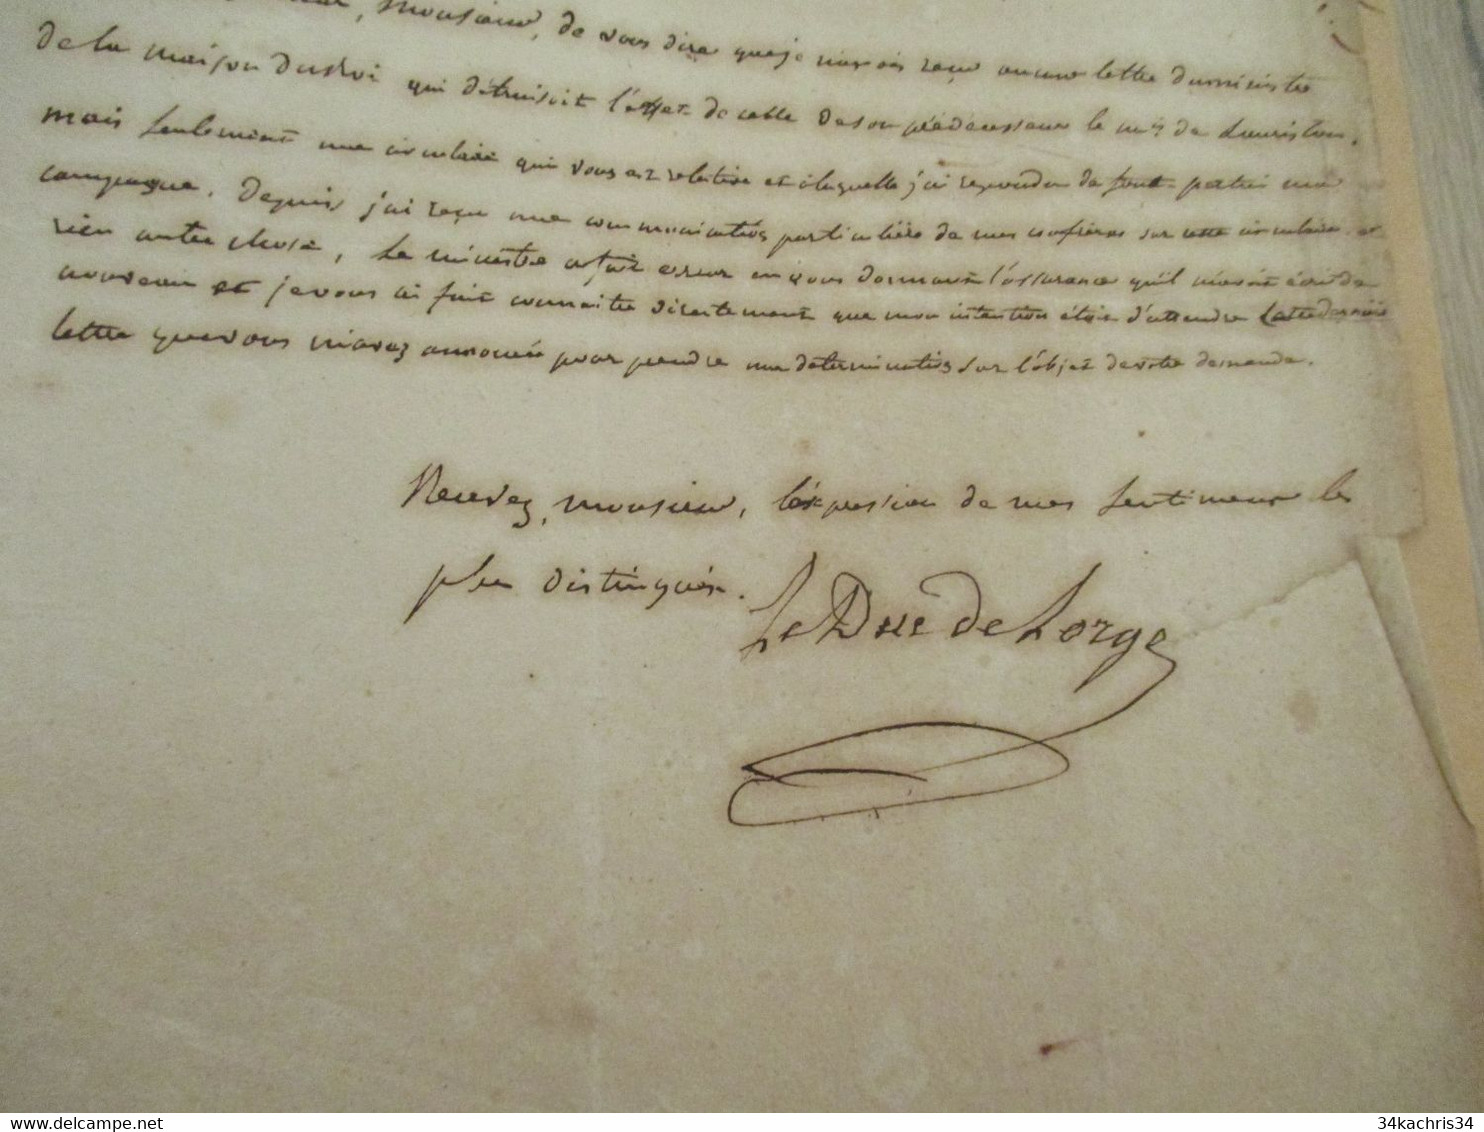 , Monsieur, de vous dire que je n'avois reçu aucune lettre du ministre
de la maison du Roi qui détruisoit l'effet de celle de son prédécesseur le mis de Lauriston,
mais seulement une circulaire qui vous est relative et à laquelle j'ai répondu de faire partie ma
compagnie. Depuis j'ai reçu une communication particulière de mes confrères sur cette circulaire et
rien autre chose, le ministre a fait erreur en vous donnant l'assurance qu'il m'avoit écrit de
nouveau et je vous ai fait connaitre directement que mon intention étoit d'attendre cette dernière
lettre que vous m'avez annoncée pour prendre une determination sur l'objet de votre demande.
Recevez, monsieur, l'expression de mes sentimens les
plus distingués.
Le Duc de Lorge
34kachris34